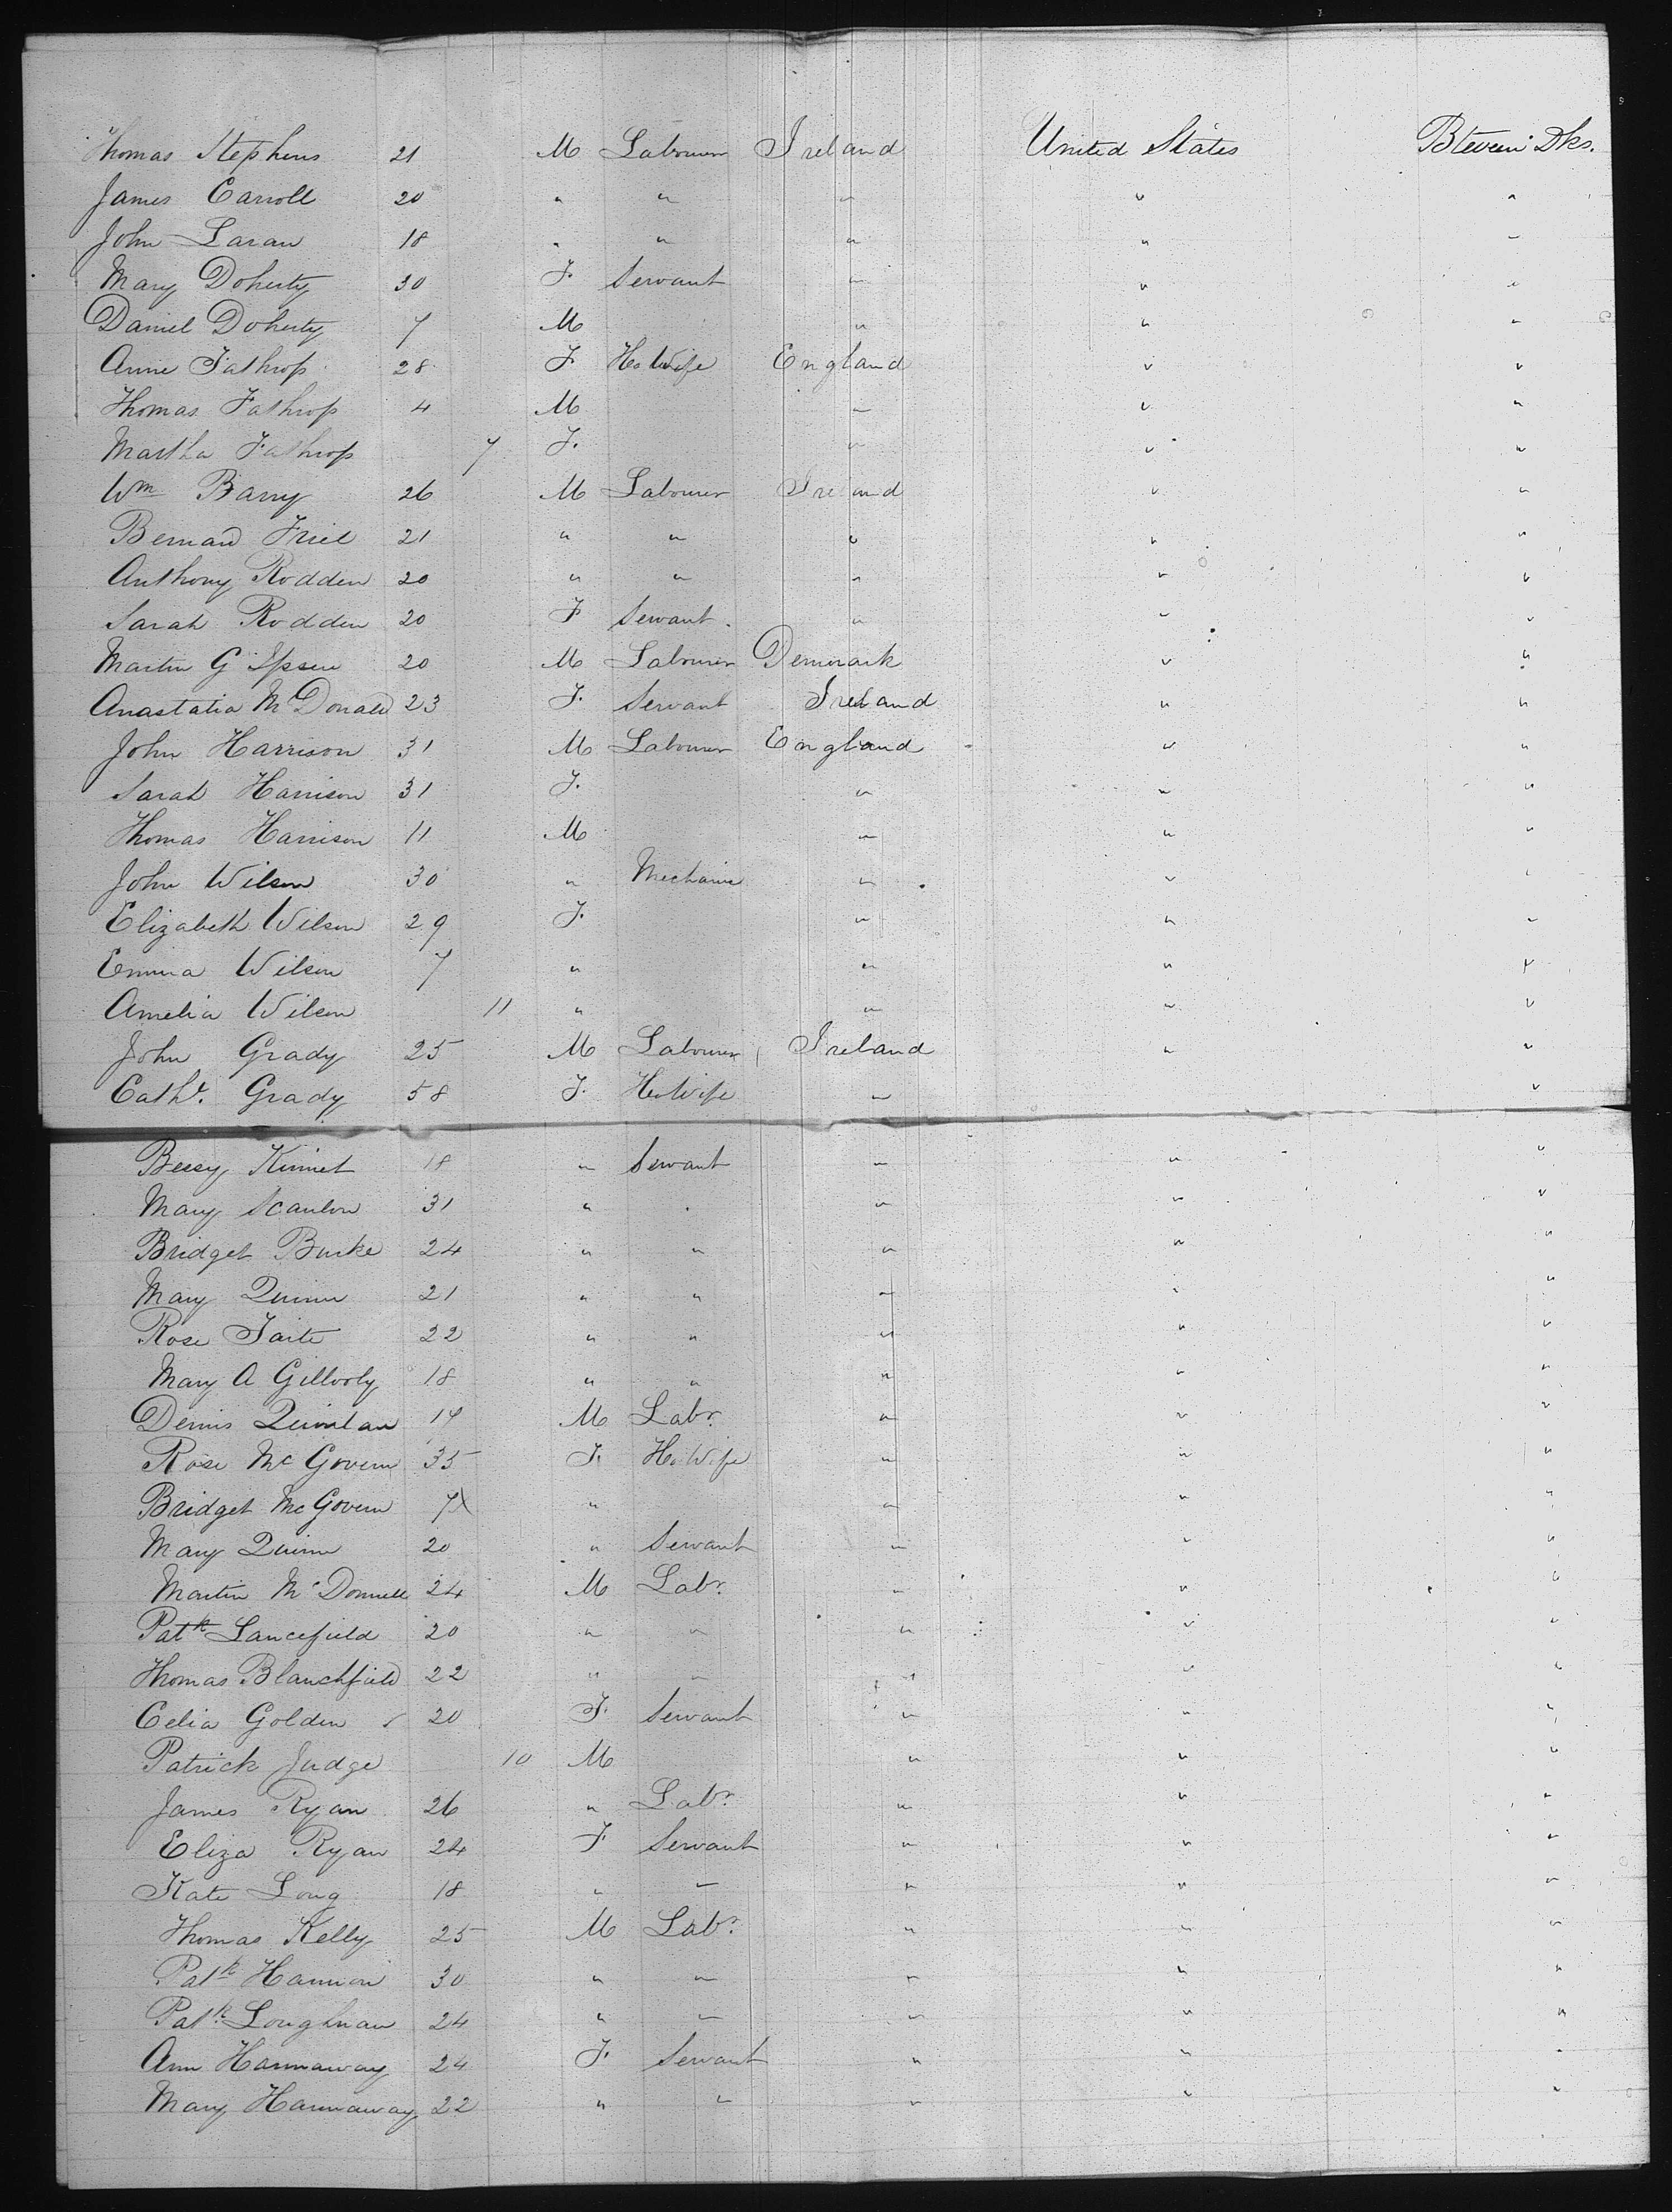 Thomas Stephens 21 M Labourer Ireland United States Btween Dks.
James Carroll 20 " " " " "
John Laran 18 " " " " "
Mary Doherty 30 F Servant " " "
Daniel Doherty 7 M " " "
Anne Fathrop 28 F Hs Wife England " "
Thomas Fathrop 4 M " " "
Martha Fathrop 7 F. " " "
Wm Barry 26 M Labourer Ireland " "
Bernard Friel 21 " " " " "
Anthony Rodden 20 " " " " "
Sarah Rodden 20 F Servant " " "
Martin G Ipsen 20 M Labourer Denmark " "
Anastatia McDonald 23 F. Servant Ireland " "
John Harrison 31 M Labourer England " "
Sarah Harrison 31 F. " " "
Thomas Harrison 11 M " " "
John Wilson 30 " Mechanic " " "
Elizabeth Wilson 29 F. " " "
Emma Wilson 7 " " " "
Amelia Wilson 11 " " " "
John Grady 25 M Labourer Ireland " "
Cathe. Grady 58 F. Hs Wife " " "
Bessy Kinnet 18 " Servant " " "
Mary Scanlon 31 " " " " "
Bridget Burke 24 " " " " "
Mary Quinn 21 " " " " "
Rose Taite 22 " " " " "
Mary A Gillooly 18 " " " " "
Dennis Quinlan 17 M Labr. " " "
Rose McGovern 35 F. Hs Wife " " "
Bridget McGovern 7 " " " "
Mary Quinn 20 " Servant " " "
Martin McDonnell 24 M Labr. " " "
Patk Lancefield 20 " " " " "
Thomas Blanchfield 22 " " " " "
Celia Golden 20 F. Servant " " "
Patrick Judge 10 M " " "
James Ryan 26 " Labr. " " "
Eliza Ryan 24 F Servant " " "
Kate Long 18 " " " " "
Thomas Kelly 25 M Labr. " " "
Patk Hannon 30 " " " " "
Patk. Loughnan 24 " " " " "
Ann Hannaway 24 F. Servant " " "
Mary Hannaway 22 " " " " "